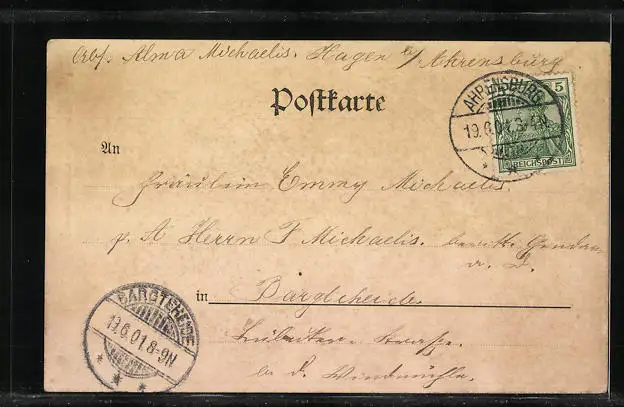 Abs. Alma Michaelis. Hagen b/ Ahrensburg
Postkarte
AHRENSBURG
19.6.01.
5
REICHSPOST
An
Fräulein Emmy Michaelis.
p. A Herrn F Michaelis. beritt. Gendar.
a. D.
in Bargteheide
Lübecker Strasse.
b. d. Windmühle.
BARGTEHEIDE
19.6.01.8-9N